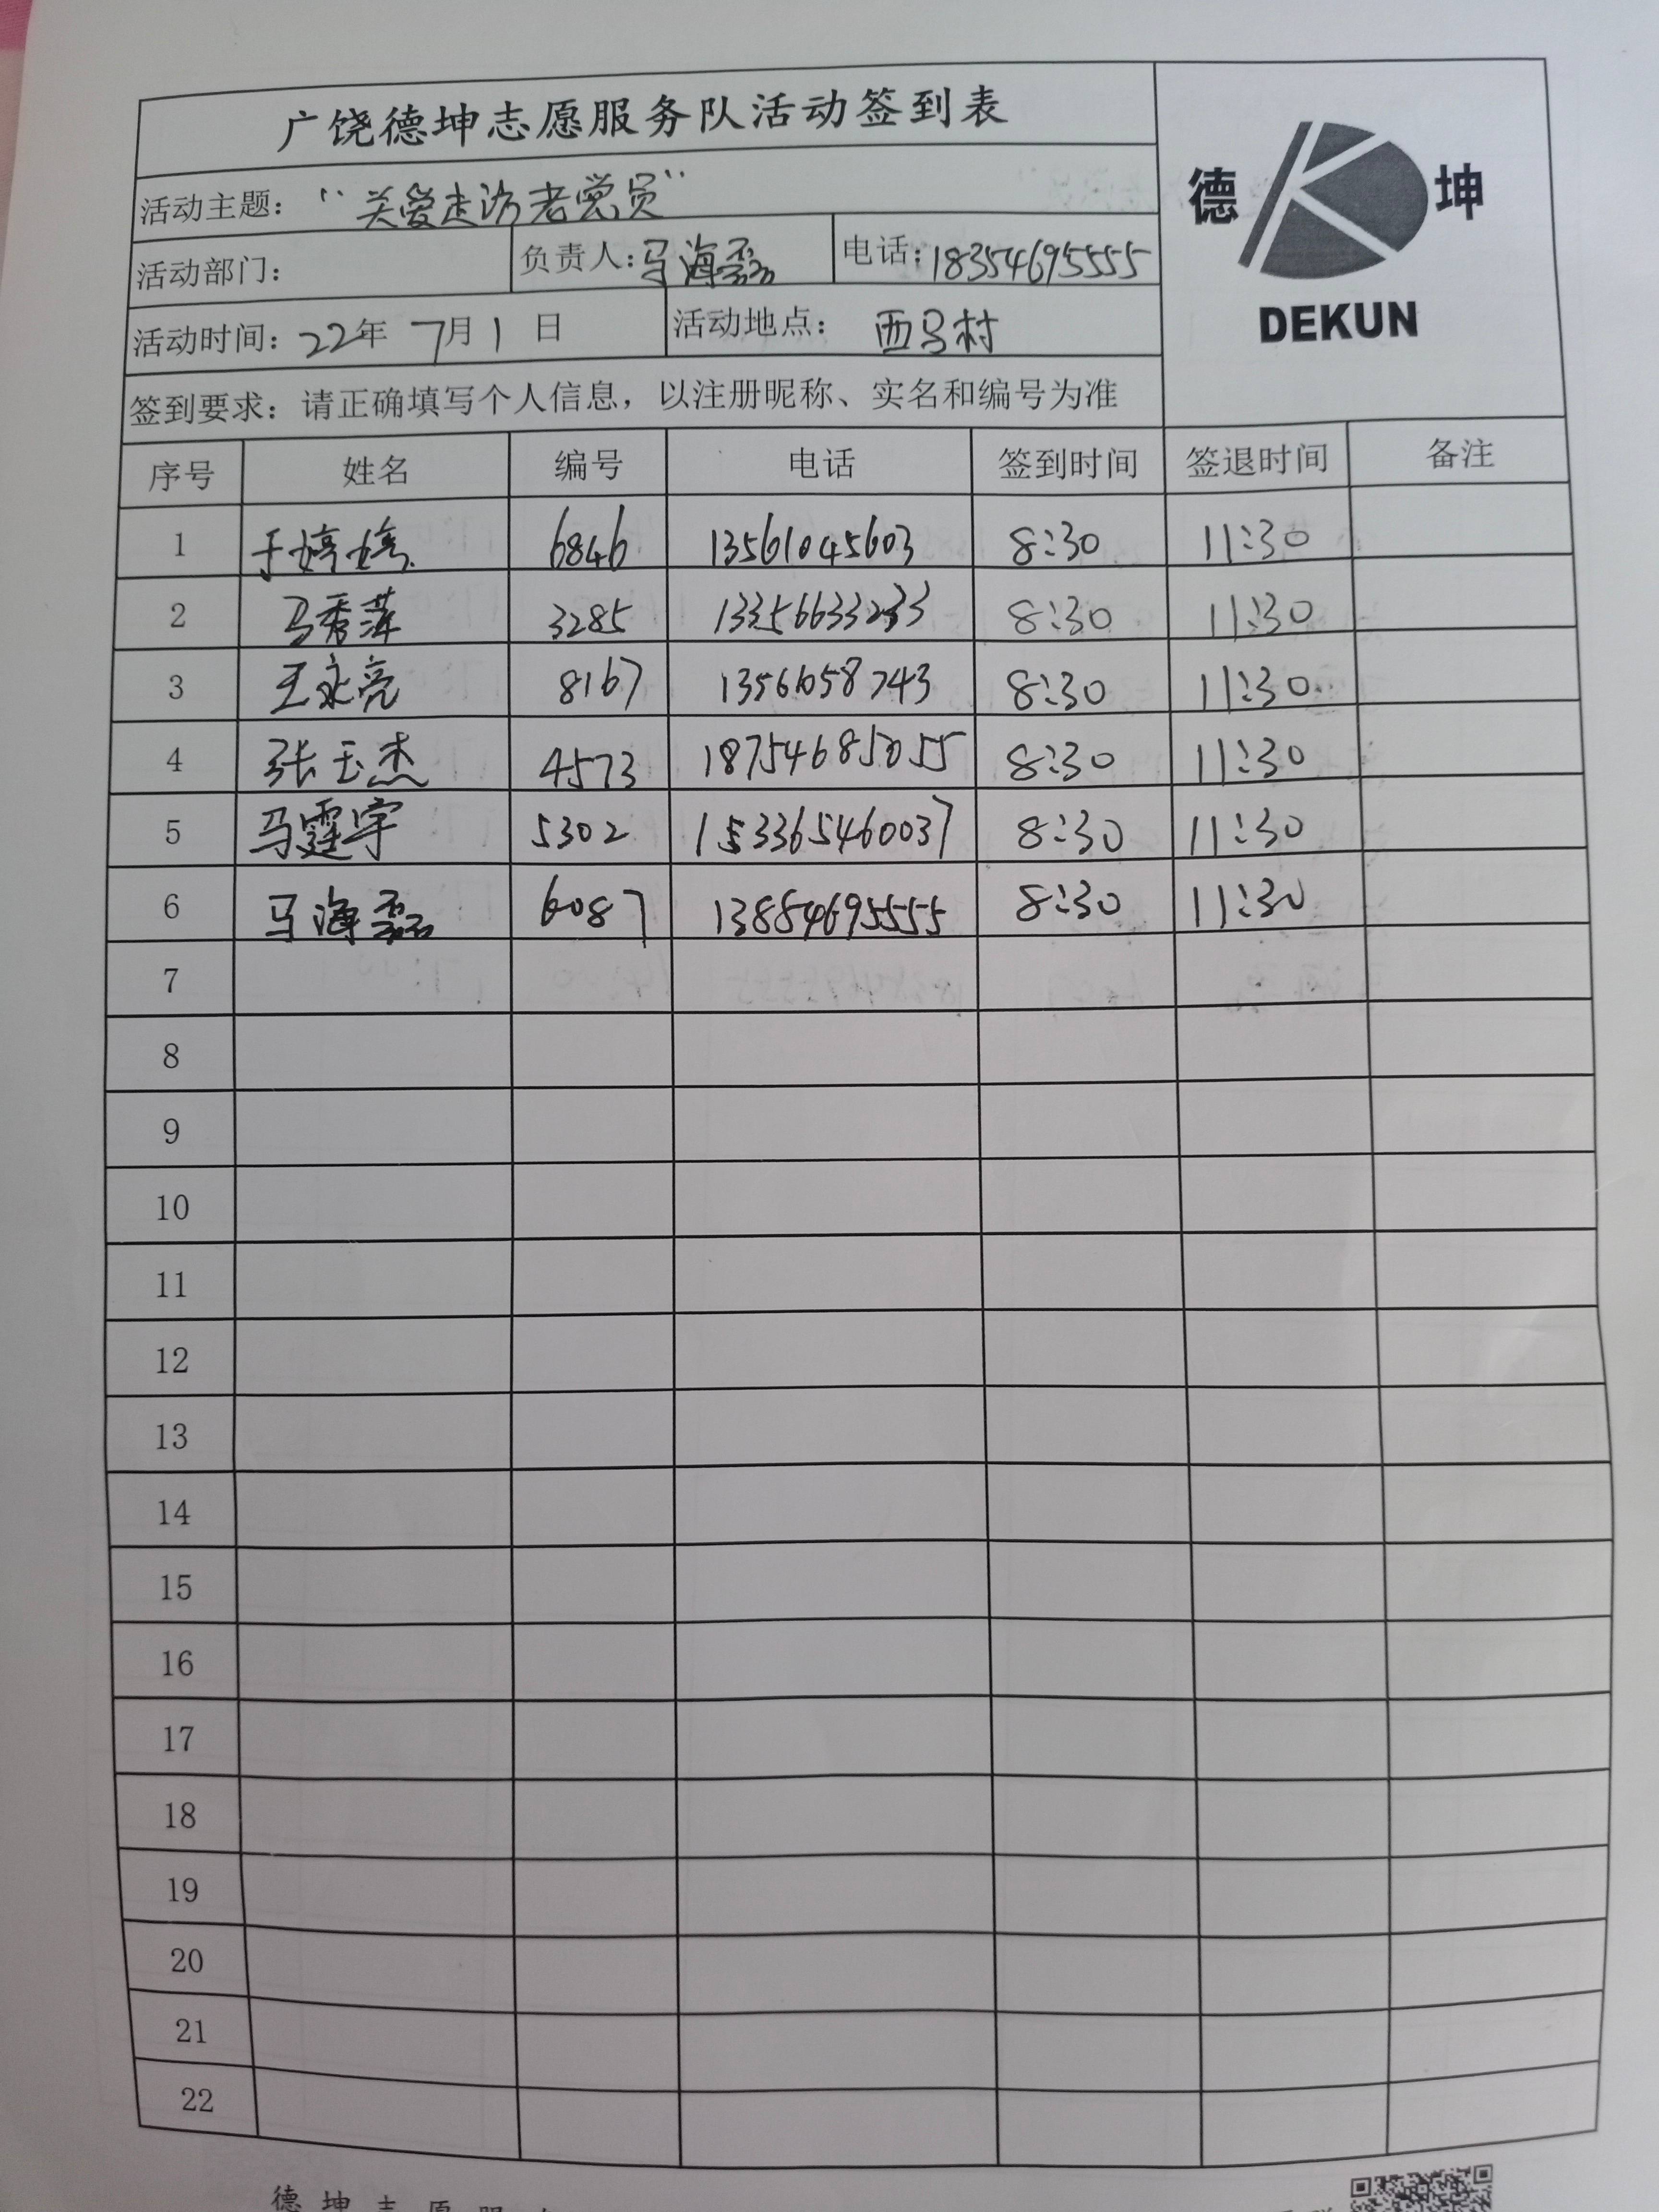 广饶德坤志愿服务队活动签到表
活动主题："关爱走访老党员"
德 坤
活动部门： 负责人：马海磊 电话：18354695555
DEKUN
活动时间：22年 7月1 日 活动地点： 西马村
签到要求：请正确填写个人信息，以注册昵称、实名和编号为准
序号 姓名 编号 电话 签到时间 签退时间 备注
1 于婷婷 6846 13561045603 8:30 11:30
2 马秀萍 3285 13356633233 8:30 11:30
3 王永亮 8167 1356658743 8:30 11:30
4 张玉杰 4573 18754685055 8:30 11:30
5 马霆宇 5302 153365460037 8:30 11:30
6 马海磊 6087 13884695555 8:30 11:30
7
8
9
10
11
12
13
14
15
16
17
18
19
20
21
22
德坤志愿服